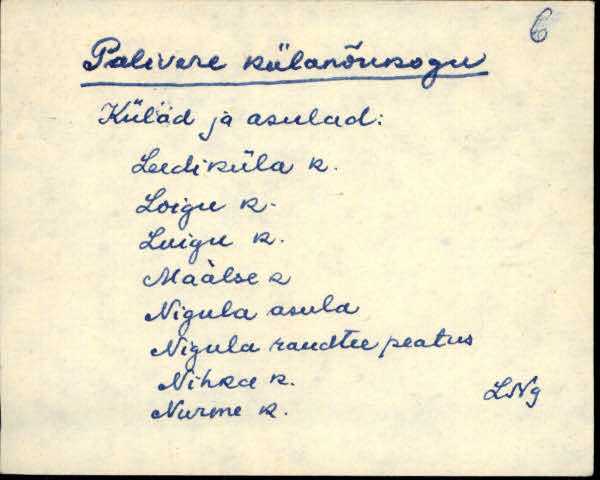 6
Palivere külanõukogu
Küläd ja asulad:
Lediküla k.
Loigu k.
Luigu k.
Määlse k
Nigula asula
Nigula raudtee peatus
Nihka k.
Nurme k.
LNg